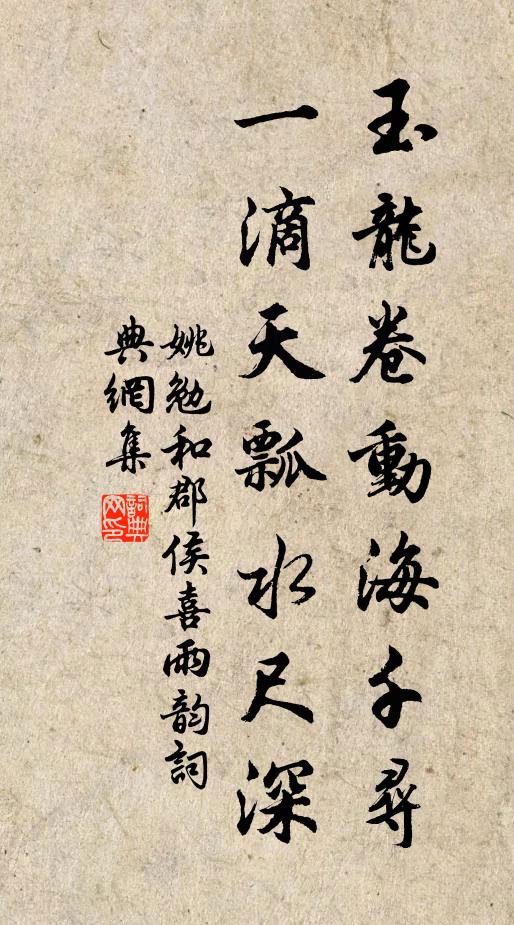 玉龍卷動海千尋
一滴天瓢水尺深
姚勉和郡侯喜雨韵詞
典網集
詞典
网印